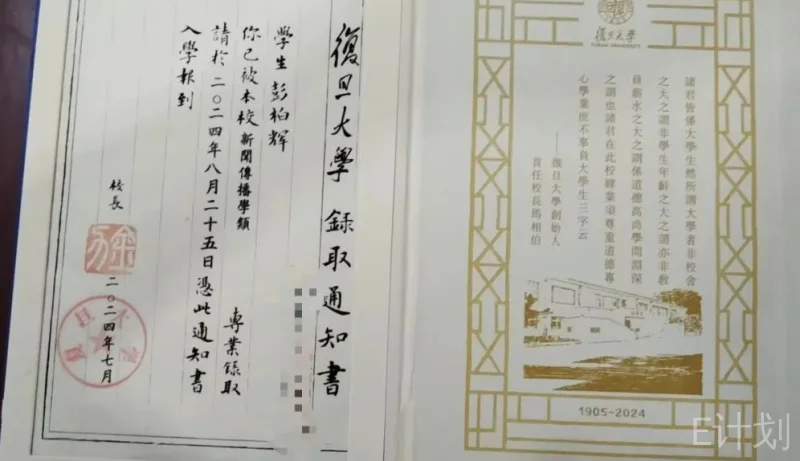 復旦大學 錄取通知書
學生 彭柏辉
你已被本校新聞傳播學類
專業錄取
請於二〇二四年八月二十五日憑此通知書
入學報到
校長
二〇二四年七月
復旦大學
FUDAN UNIVERSITY
諸君皆係大學生然所謂大學者非校舍
之大之謂非學生年齡之大之謂亦非教
員薪水之大之謂係道德高尚學問淵深
之謂也諸君在此校肄業須尊重道德專
心學業庶不辜負大學生三字云
——復旦大學創始人
首任校長馬相伯
1905-2024
E计划